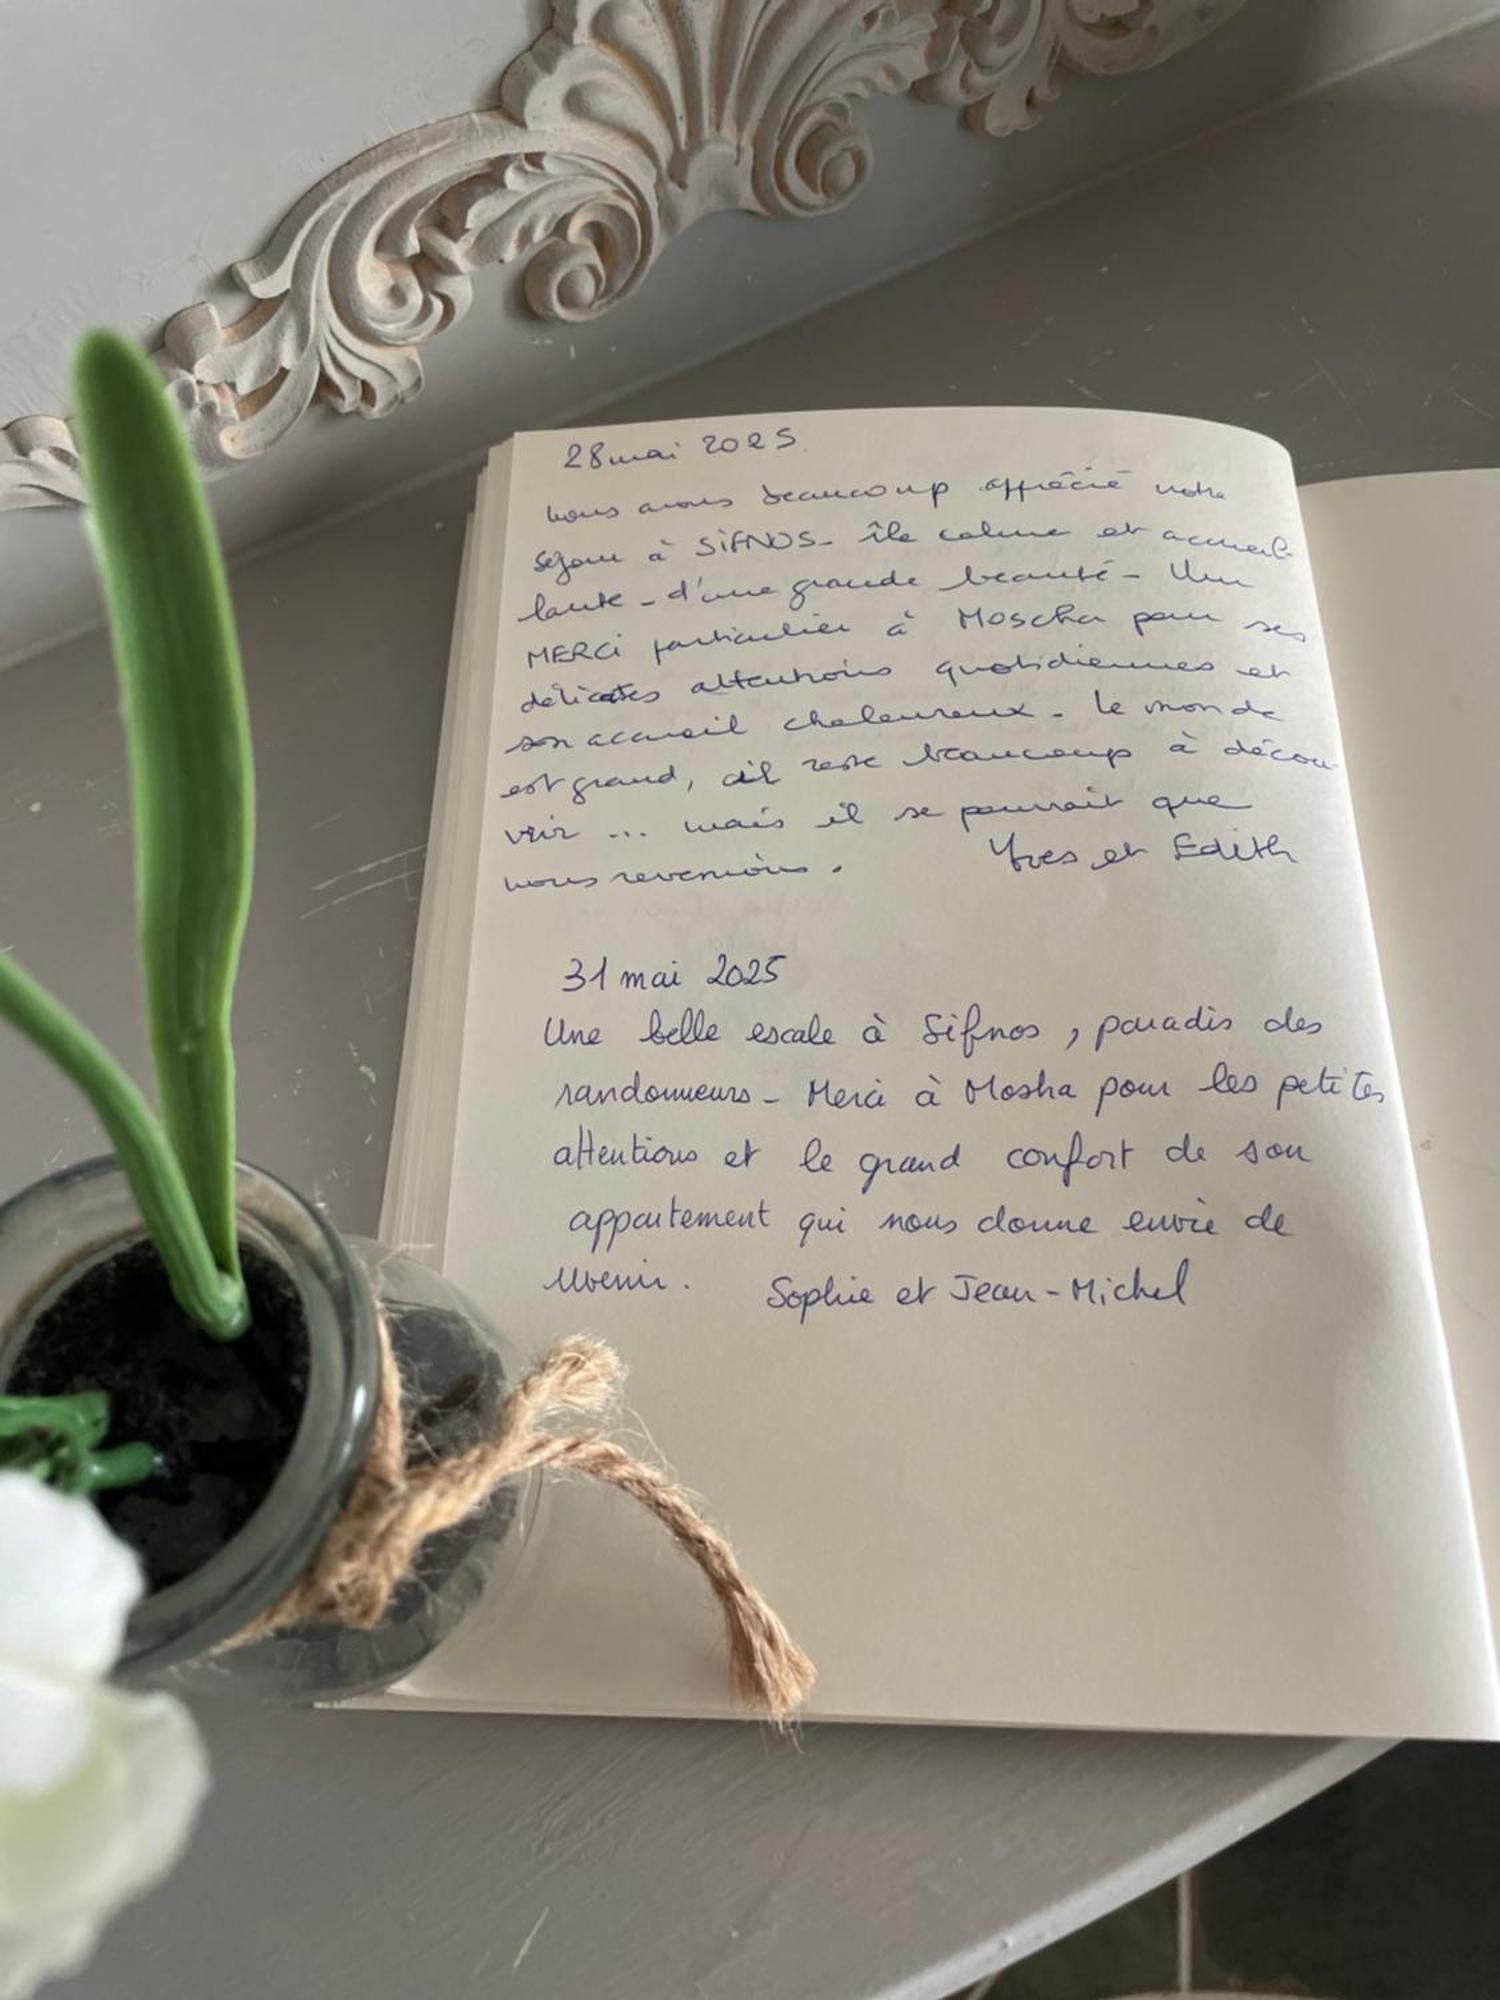 28 mai 2025.
nous avons beaucoup apprécié notre
séjour à SIFNOS - île calme et accueil-
lante - d'une grande beauté - Un
MERCI particulier à Moscha pour ses
délicates attentions quotidiennes et
son accueil chaleureux - le monde
est grand, il reste beaucoup à décou-
vrir ... mais il se pourrait que
nous revenions. Yves et Edith
31 mai 2025
Une belle escale à Sifnos, paradis des
randonneurs - Merci à Mosha pour les petites
attentions et le grand confort de son
appartement qui nous donne envie de
revenir. Sophie et Jean-Michel